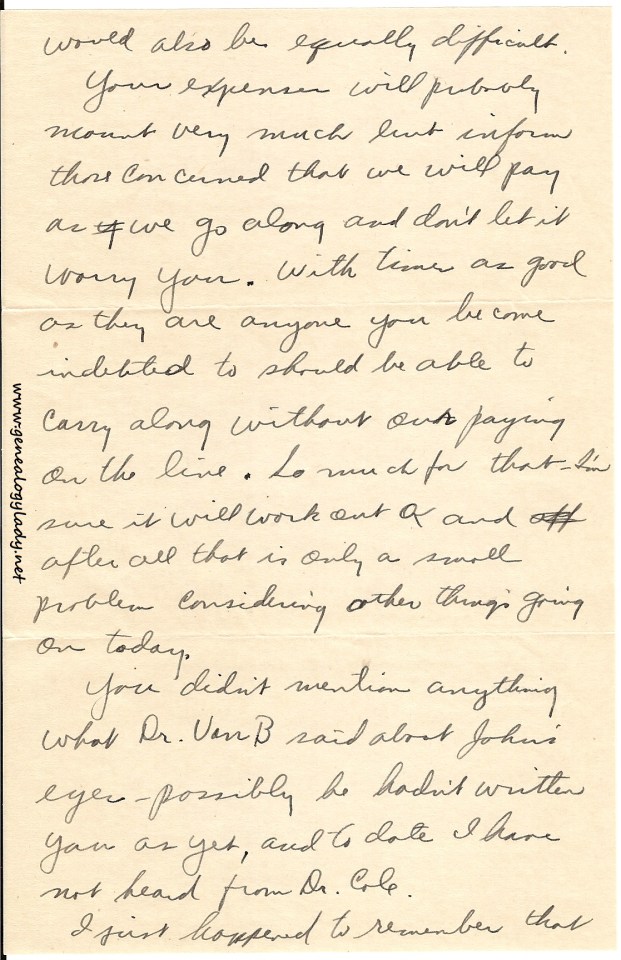 would also be equally difficult.
Your expenses will probably
mount very much but inform
those concerned that we will pay
as if we go along and don't let it
worry you. With times as good
as they are anyone you become
indebted to should be able to
carry along without our paying
on the line. So much for that – I'm
sure it will work out OK and off
after all that is only a small
problem considering other things going
on today.
You didn't mention anything
what Dr. Van B said about John's
eyes – possibly he hadn't written
you as yet, and to date I have
not heard from Dr. Cole.
I just happened to remember that
www.genealogylady.net